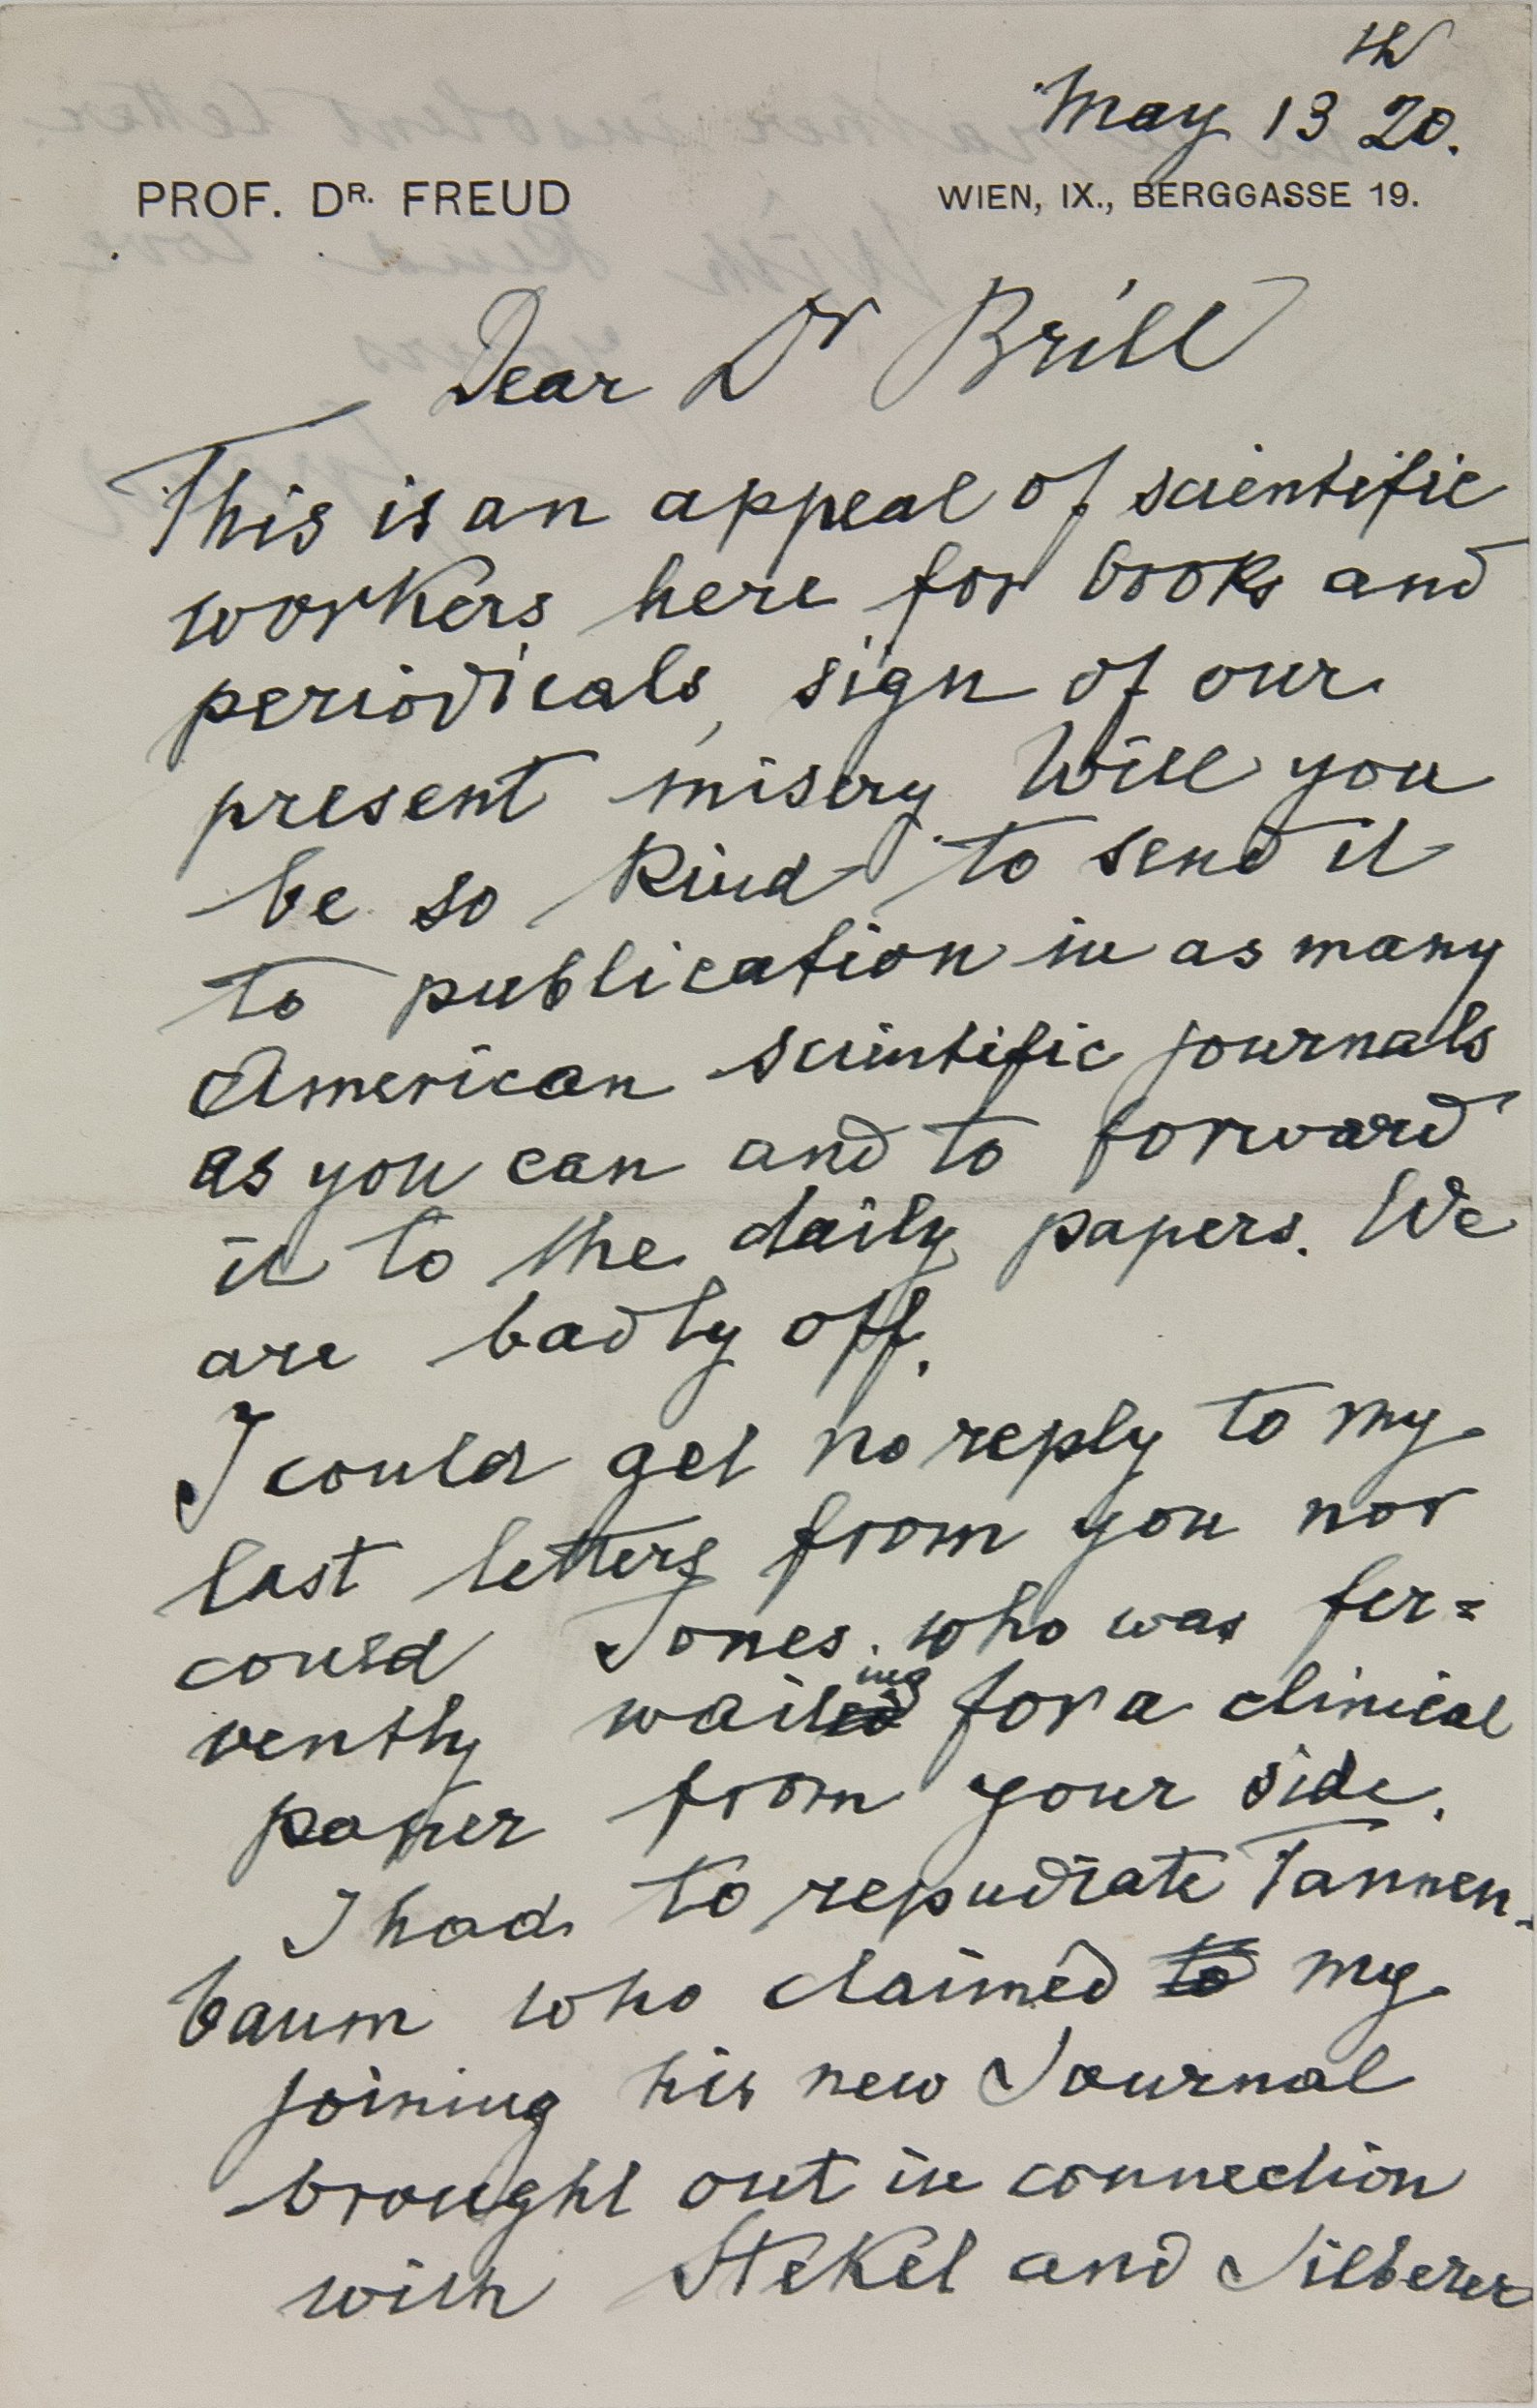 May 13th 20.
PROF. DR. FREUD WIEN, IX., BERGGASSE 19.
Dear Dr Brill
This is an appeal of scientific
workers here for books and
periodicals, sign of our
present misery. Will you
be so kind to send it
to publication in as many
American scientific journals
as you can and to forward
it to the daily papers. We
are badly off.
I could get no reply to my
last letters from you nor
could Jones. who was fer=
vently waiting for a clinical
paper from your side.
I had to repudiate Tannen-
baum who claimed to my
joining his new Journal
brought out in connection
with Stekel and Silberer